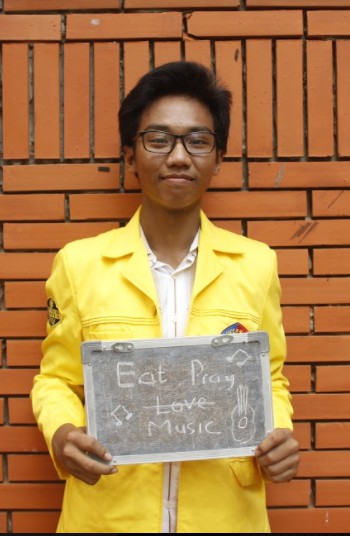 Eat Pray
Love
Music